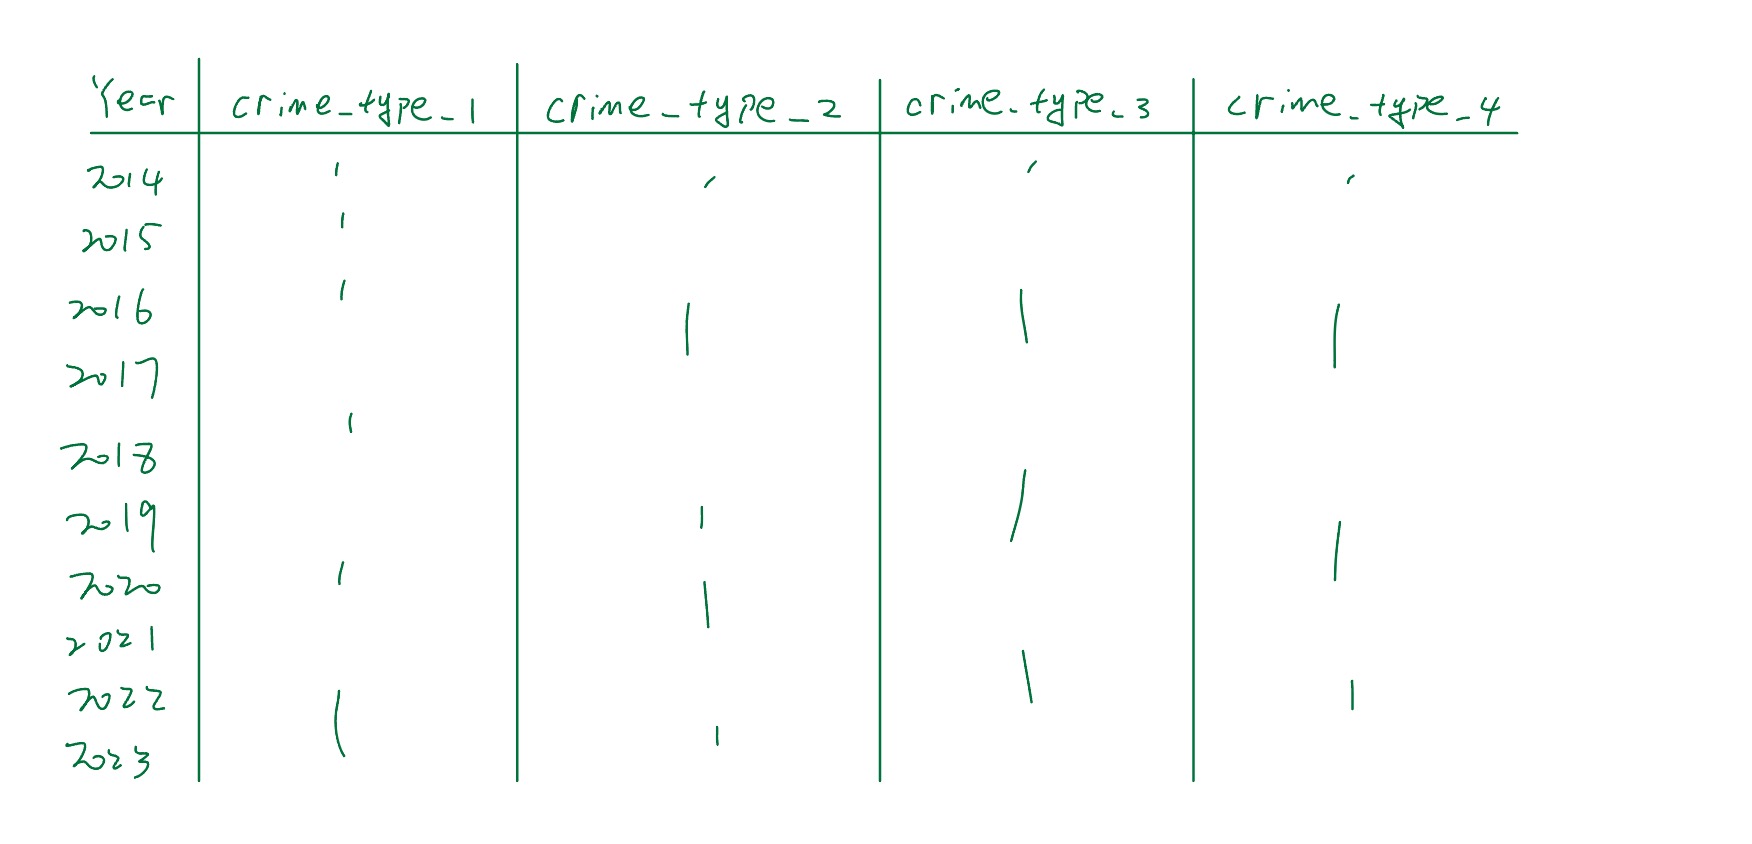 Year crime_type_1 crime_type_2 crime_type_3 crime_type_4
2014
2015
2016
2017
2018
2019
2020
2021
2022
2023